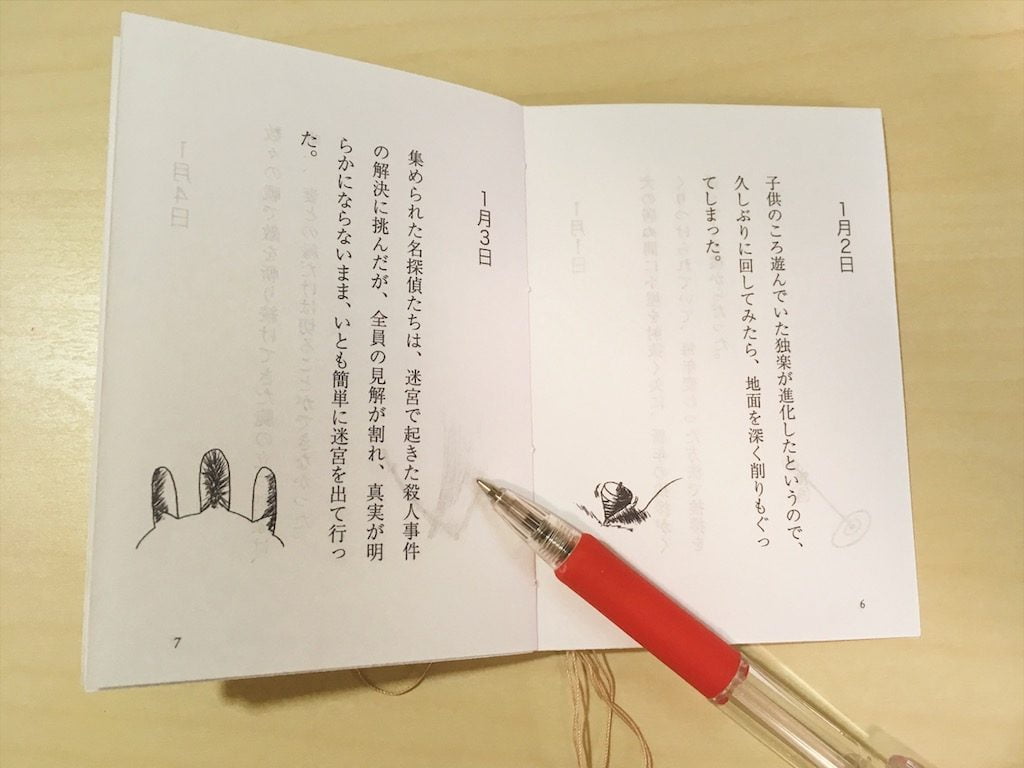 1月2日
子供のころ遊んでいた独楽が進化したというので、
久しぶりに回してみたら、地面を深く削りもぐっ
てしまった。
6
1月3日
集められた名探偵たちは、迷宮で起きた殺人事件
の解決に挑んだが、全員の見解が割れ、真実が明
らかにならないまま、いとも簡単に迷宮を出て行っ
た。
7
1月1日
1月4日